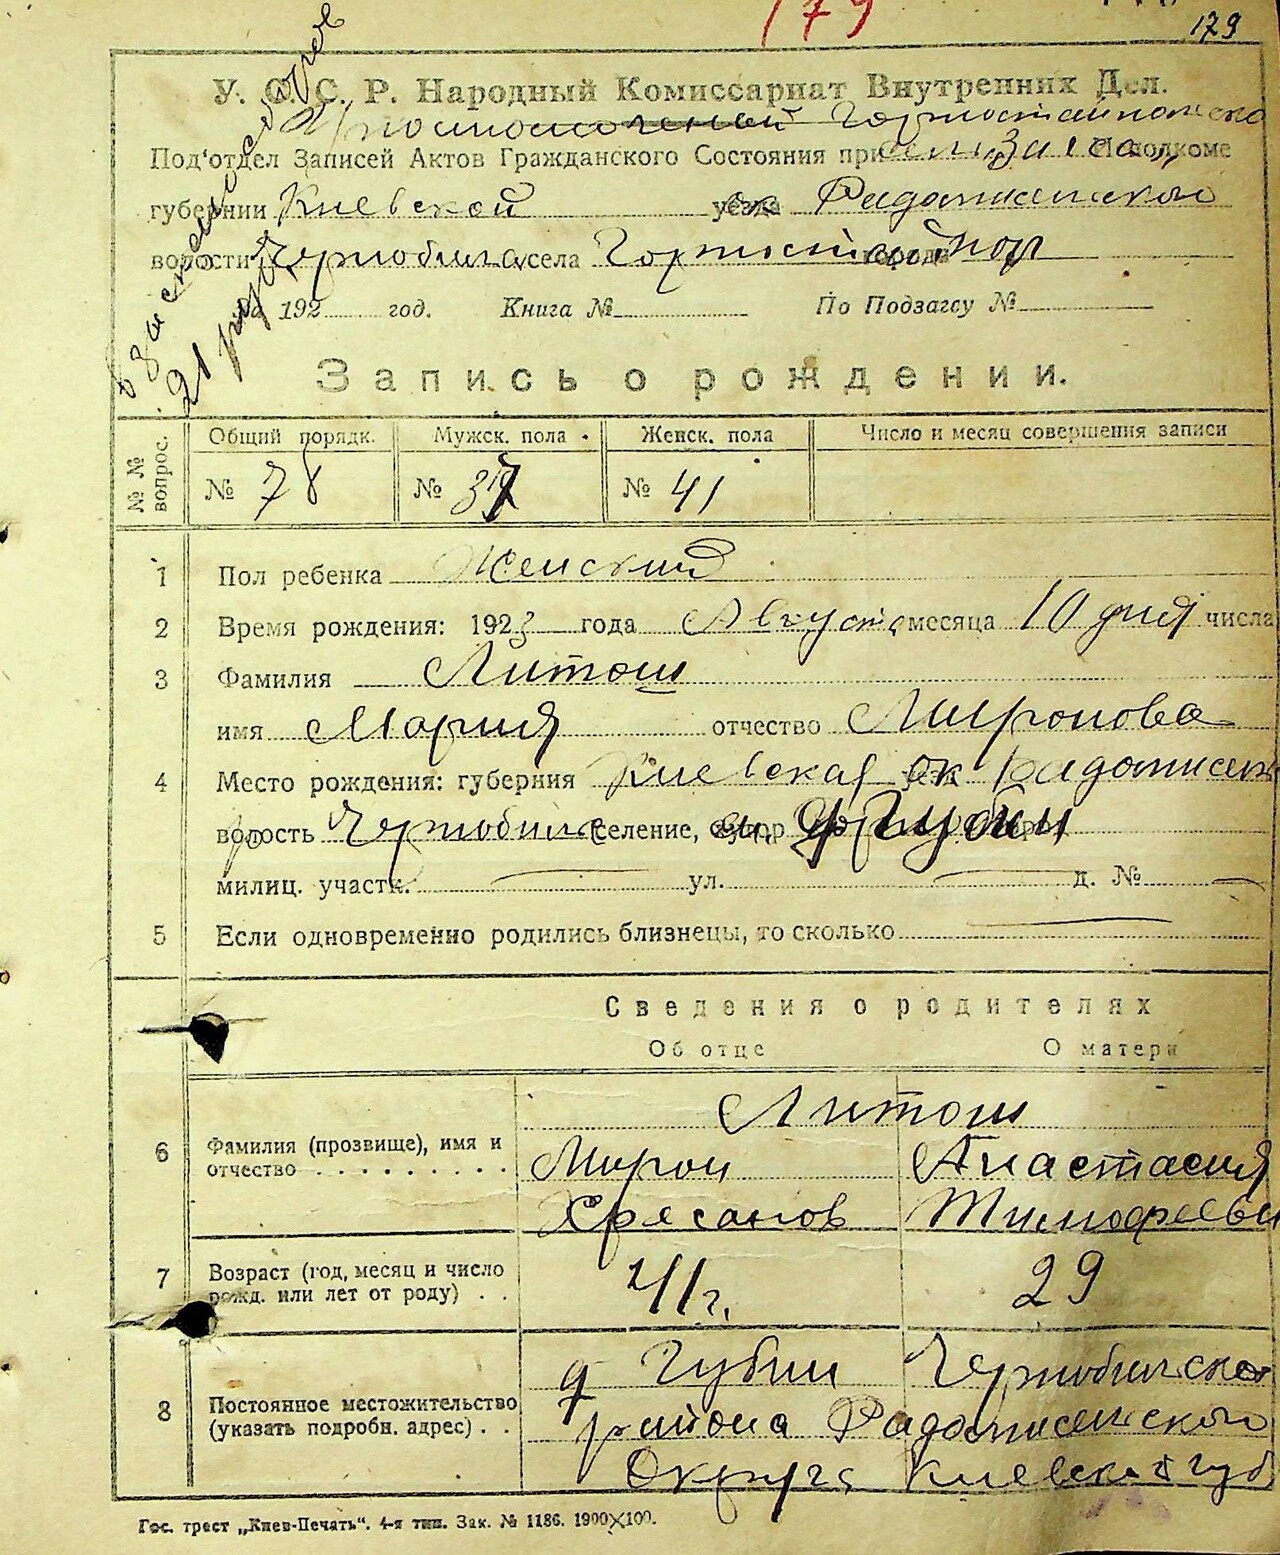 179
179
У. С. С. Р. Народный Комиссариат Внутренних Дел.
Под'отдел Записей Актов Гражданского Состояния при Исполкоме
губернии Киевской уезда ок Радомисльской
волости Чернобильск села Горностайпол
За 192 год. Книга № По Подзагсу №
Запись о рождении.
№ № вопрос.
Общий порядк. Мужск. пола Женск. пола Число и месяц совершения записи
№ 78 № 37 № 41
1 Пол ребенка Женский
2 Время рождения: 1923 года Август месяца 10 дня числа
3 Фамилия Литош
имя Мария отчество Миронова
4 Место рождения: губерния Киевская ок Радомисльс
волость Чернобильс селение, хутор д Губин
милиц. участк. ул. д. №
5 Если одновременно родились близнецы, то сколько
Сведения о родителях
Об отце О матери
Литош
6 Фамилия (прозвище), имя и отчество
Мирон Анастасия
Хрисанов Тимофеевн
7 Возраст (год, месяц и число рожд. или лет от роду) . .
41 г. 29
8 Постоянное местожительство (указать подробн. адрес) . .
д Губин Чернобильско
района Радомисльского
Округа Киевской губ
Гос. трест „Киев-Печать“. 4-я тип. Зак. № 1186. 1900×100.